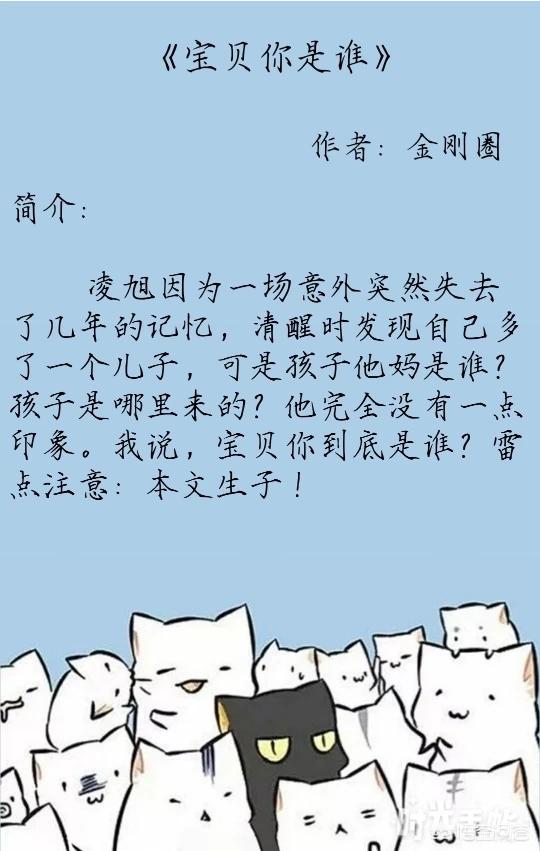 《宝贝你是谁》
作者：金刚圈
简介：
凌旭因为一场意外突然失去
了几年的记忆，清醒时发现自己多
了一个儿子，可是孩子他妈是谁？
孩子是哪里来的？他完全没有一点
印象。我说，宝贝你到底是谁？雷
点注意：本文生子！